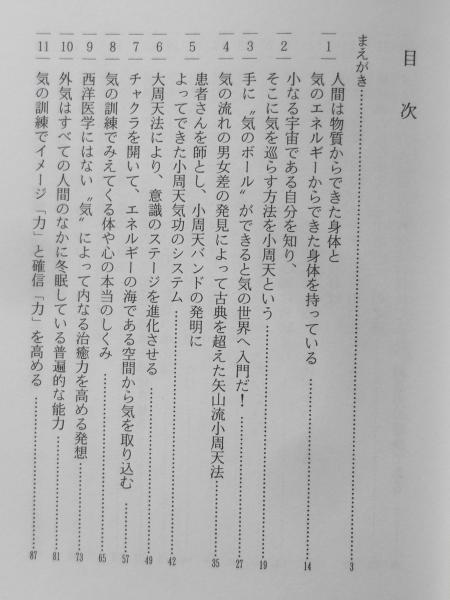 目次
まえがき……………………3
1 人間は物質からできた身体と
気のエネルギーからできた身体を持っている……………………14
2 小なる宇宙である自分を知り、
そこに気を巡らす方法を小周天という……………………19
3 手に〝気のボール〟ができると気の世界へ入門だ!……………………27
4 気の流れの男女差の発見によって古典を超えた矢山流小周天法……………………35
5 患者さんを師とし、小周天バンドの発明に
よってできた小周天気功のシステム……………………42
6 大周天法により、意識のステージを進化させる……………………49
7 チャクラを開いて、エネルギーの海である空間から気を取り込む……………………57
8 気の訓練でみえてくる体や心の本当のしくみ……………………65
9 西洋医学にはない〝気〟によって内なる治癒力を高める発想……………………73
10 外気はすべての人間のなかに冬眠している普遍的な能力……………………81
11 気の訓練でイメージ「力」と確信「力」を高める……………………87